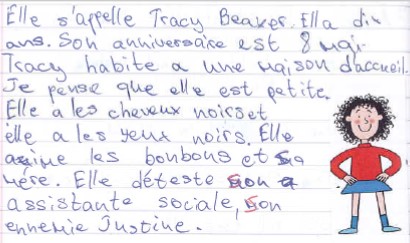 Elle s'appelle Tracy Beaker. Ella dix
ans. Son anniversaire est 8 mai.
Tracy habite a une maison d'accueil.
Je pense que elle est petite.
Elle a les cheveux noirs et
elle a les yeux noirs. Elle
aime les bonbons et sa
mère. Elle déteste son
assistante sociale, son
ennemie Justine.